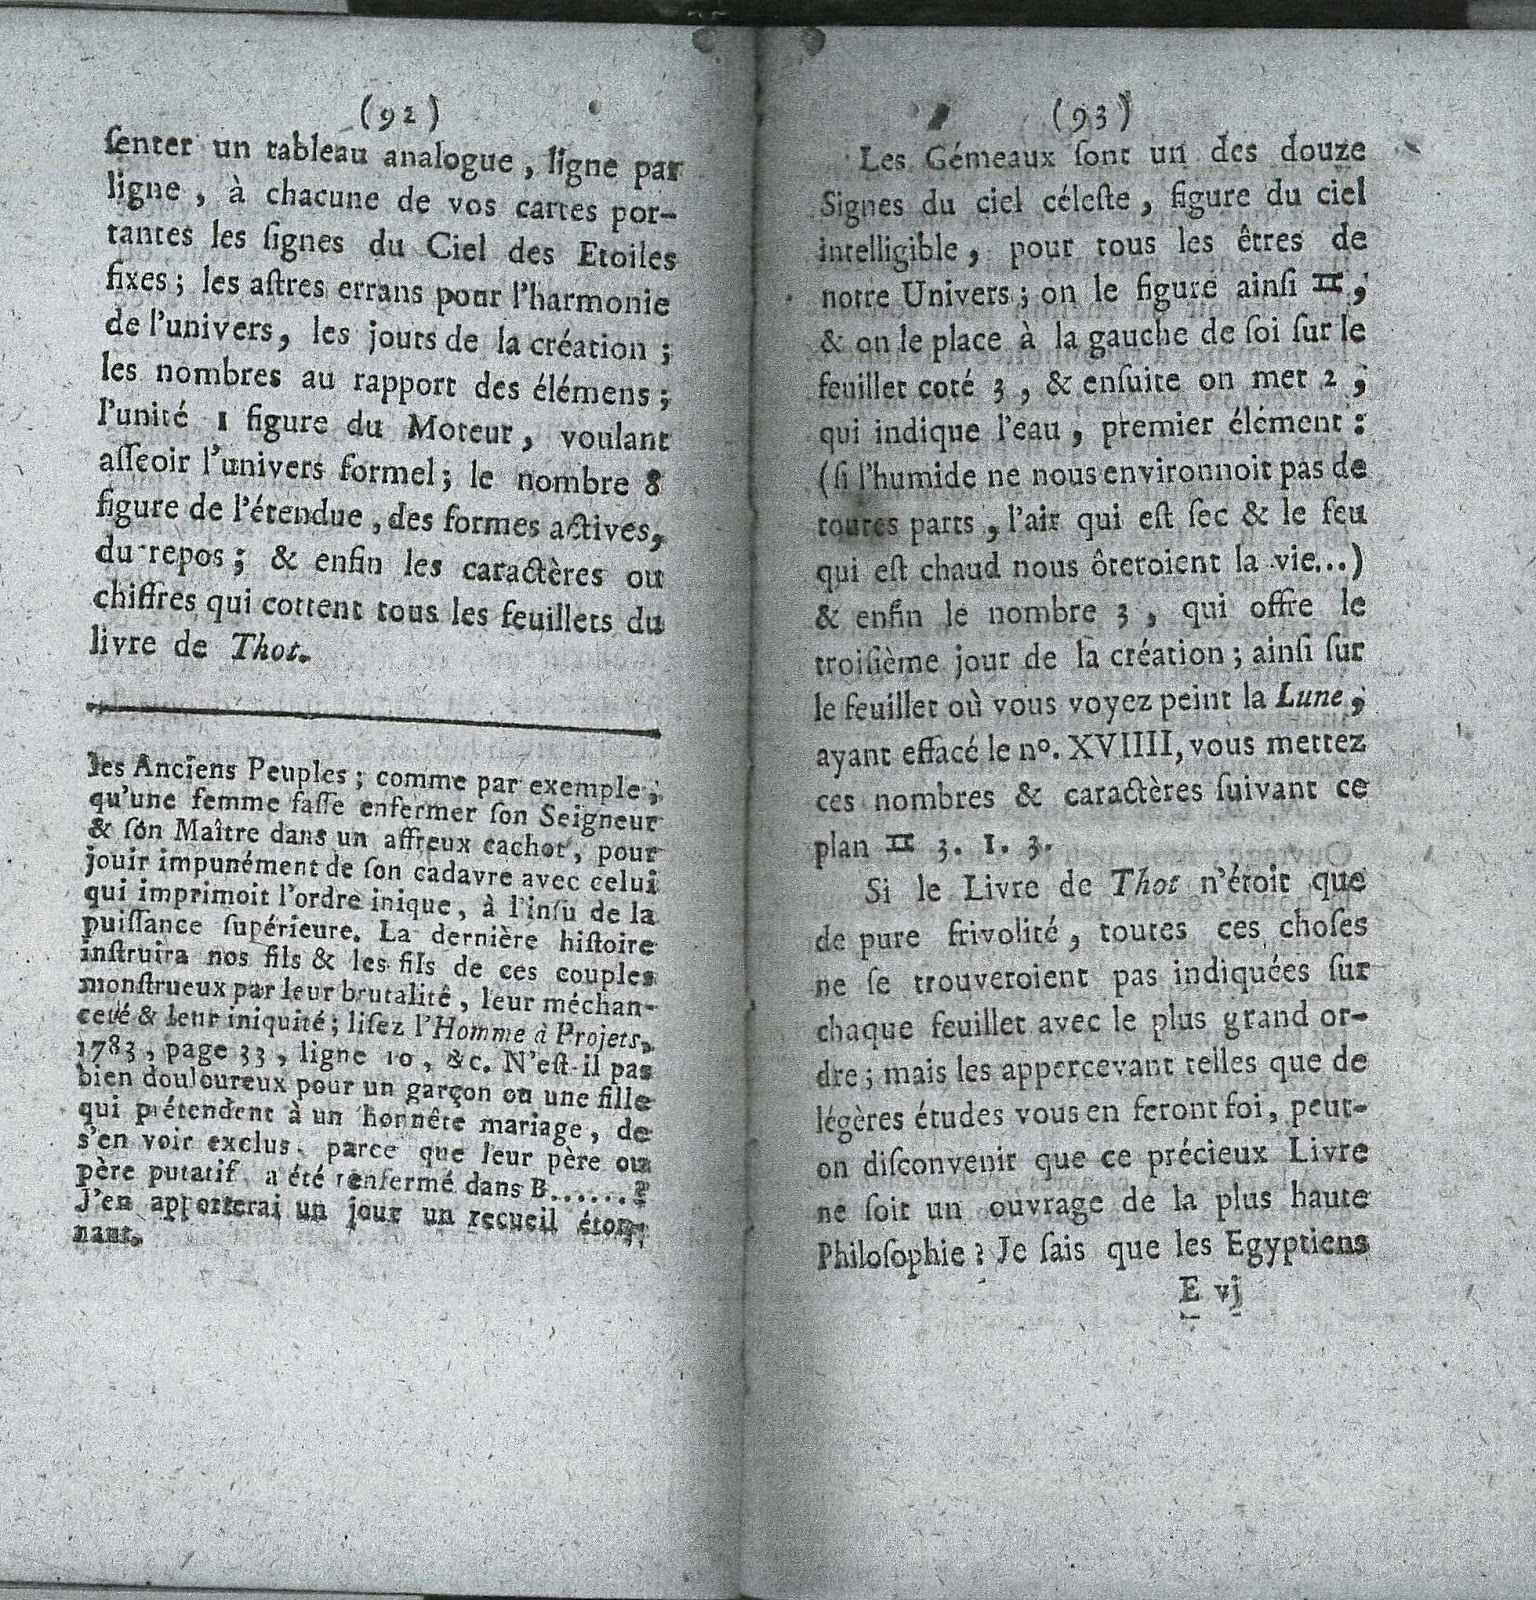 (92)
ſenter un tableau analogue, ligne par
ligne, à chacune de vos cartes por-
tantes les ſignes du Ciel des Etoiles
fixes; les aſtres errans pour l'harmonie
de l'univers, les jours de la création;
les nombres au rapport des élémens;
l'unité 1 figure du Moteur, voulant
aſſeoir l'univers formel; le nombre 8
figure de l'étendue, des formes actives,
du repos; & enfin les caractères ou
chiffres qui cottent tous les feuillets du
livre de Thot.
les Anciens Peuples; comme par exemple,
qu'une femme faſſe enfermer ſon Seigneur
& ſon Maître dans un affreux cachot, pour
jouir impunément de ſon cadavre avec celui
qui imprimoit l'ordre inique, à l'inſu de la
puiſſance ſupérieure. La dernière hiſtoire
inſtruira nos fils & les fils de ces couples
monſtrueux par leur brutalité, leur méchan-
ceté & leur iniquité; liſez l'Homme à Projets,
1783, page 33, ligne 10, &c. N'eſt-il pas
bien douloureux pour un garçon ou une fille
qui prétendent à un honnête mariage, de
s'en voir exclus, parce que leur père ou
père putatif a été renfermé dans B......?
J'en apporterai un jour un recueil éton-
nant.
(93)
Les Gémeaux ſont un des douze
Signes du ciel céleſte, figure du ciel
intelligible, pour tous les êtres de
notre Univers; on le figure ainſi ♊,
& on le place à la gauche de ſoi ſur le
feuillet coté 3, & enſuite on met 2,
qui indique l'eau, premier élément:
(ſi l'humide ne nous environnoit pas de
toutes parts, l'air qui eſt ſec & le feu
qui eſt chaud nous ôteroient la vie...)
& enfin le nombre 3, qui offre le
troiſième jour de la création; ainſi ſur
le feuillet où vous voyez peint la Lune,
ayant effacé le nº. XVIIII, vous mettez
ces nombres & caractères ſuivant ce
plan ♊ 3. 1. 3.
Si le Livre de Thot n'étoit que
de pure frivolité, toutes ces choſes
ne ſe trouveroient pas indiquées ſur
chaque feuillet avec le plus grand or-
dre; mais les appercevant telles que de
légères études vous en feront foi, peut-
on diſconvenir que ce précieux Livre
ne ſoit un ouvrage de la plus haute
Philoſophie? Je ſais que les Egyptiens
E vj